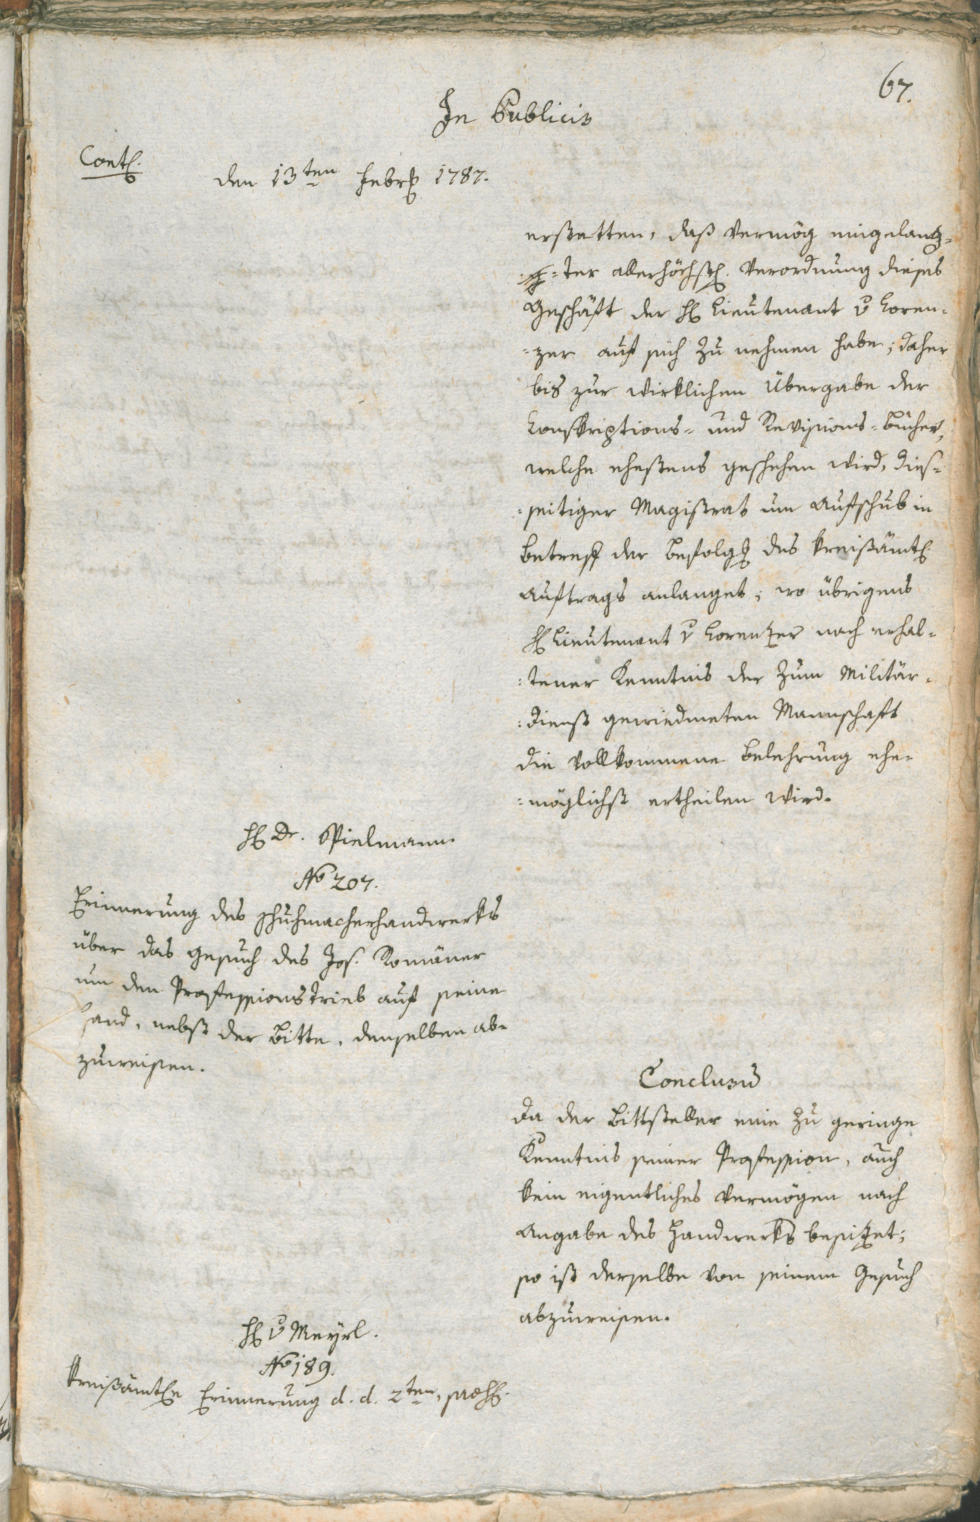 67.
In Publicis
Cont.
den 13ten Febr. 1787.
erstatten, daß vermög eingelang-
=ter allerhöchst. Verordnung dieses
Geschäft der H. Lieutenant v Loren-
=zer auf sich zu nehmen habe; daher
bis zur wirklichen Übergabe der
Conskriptions- und Revisions-Bücher,
welche ehestens geschehen wird, dies-
=seitiger Magistrat um Aufschub in
Betreff der Befolgg des kreisämtl.
Auftrags anlanget; wo übrigens
H. Lieutenant v Lorentzer nach erhal-
=tener Kenntnis der zum Militär-
=dienst gewiedmeten Mannschaft
die vollkommene Belehrung ehe-
=möglichst ertheilen wird.
H. Dr. Spielmann.
No 207.
Erinnerung des Schuhmacherhandwerks
über das Gesuch des Jos. Romäner
um den Professionstrieb auf seine
Hand, nebst der Bitte, denselben ab-
zuweisen.
Conclusū
Da der Bittsteller eine zu geringe
Kenntnis seiner Profession, auch
kein eigentliches Vermögen nach
Angabe des Handwerks besitzet;
so ist derselbe von seinem Gesuch
abzuweisen.
H. v Meyrl.
No 189.
Kreisämtle Erinnerung d. d. 2ten,